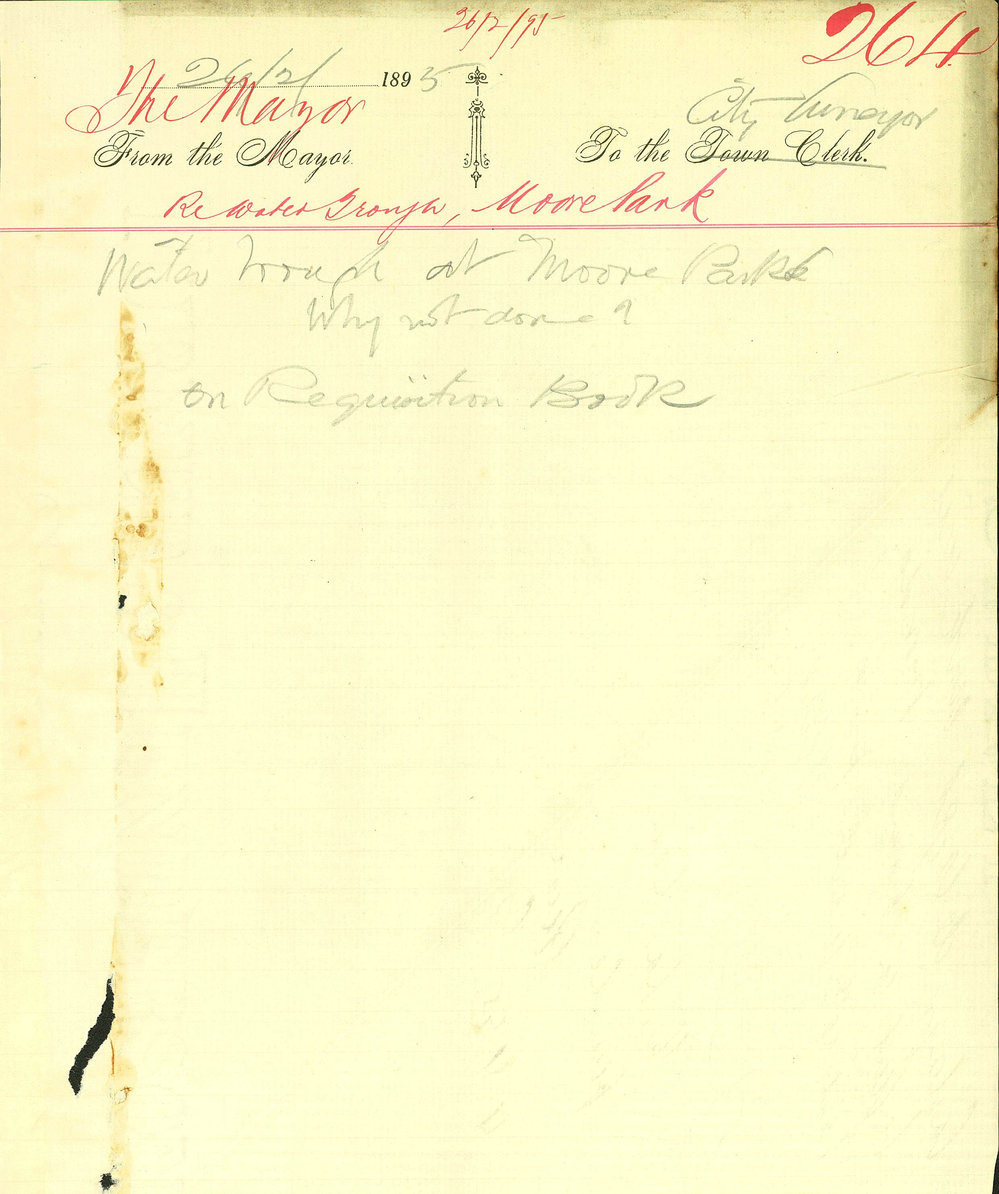 26/2/95
264
26/2/ 1895
The Mayor
City Surveyor
From the Mayor
To the Town Clerk.
Re Water Trough, Moore Park
Water Trough at Moore Park
Why not done?
on Requisition Book